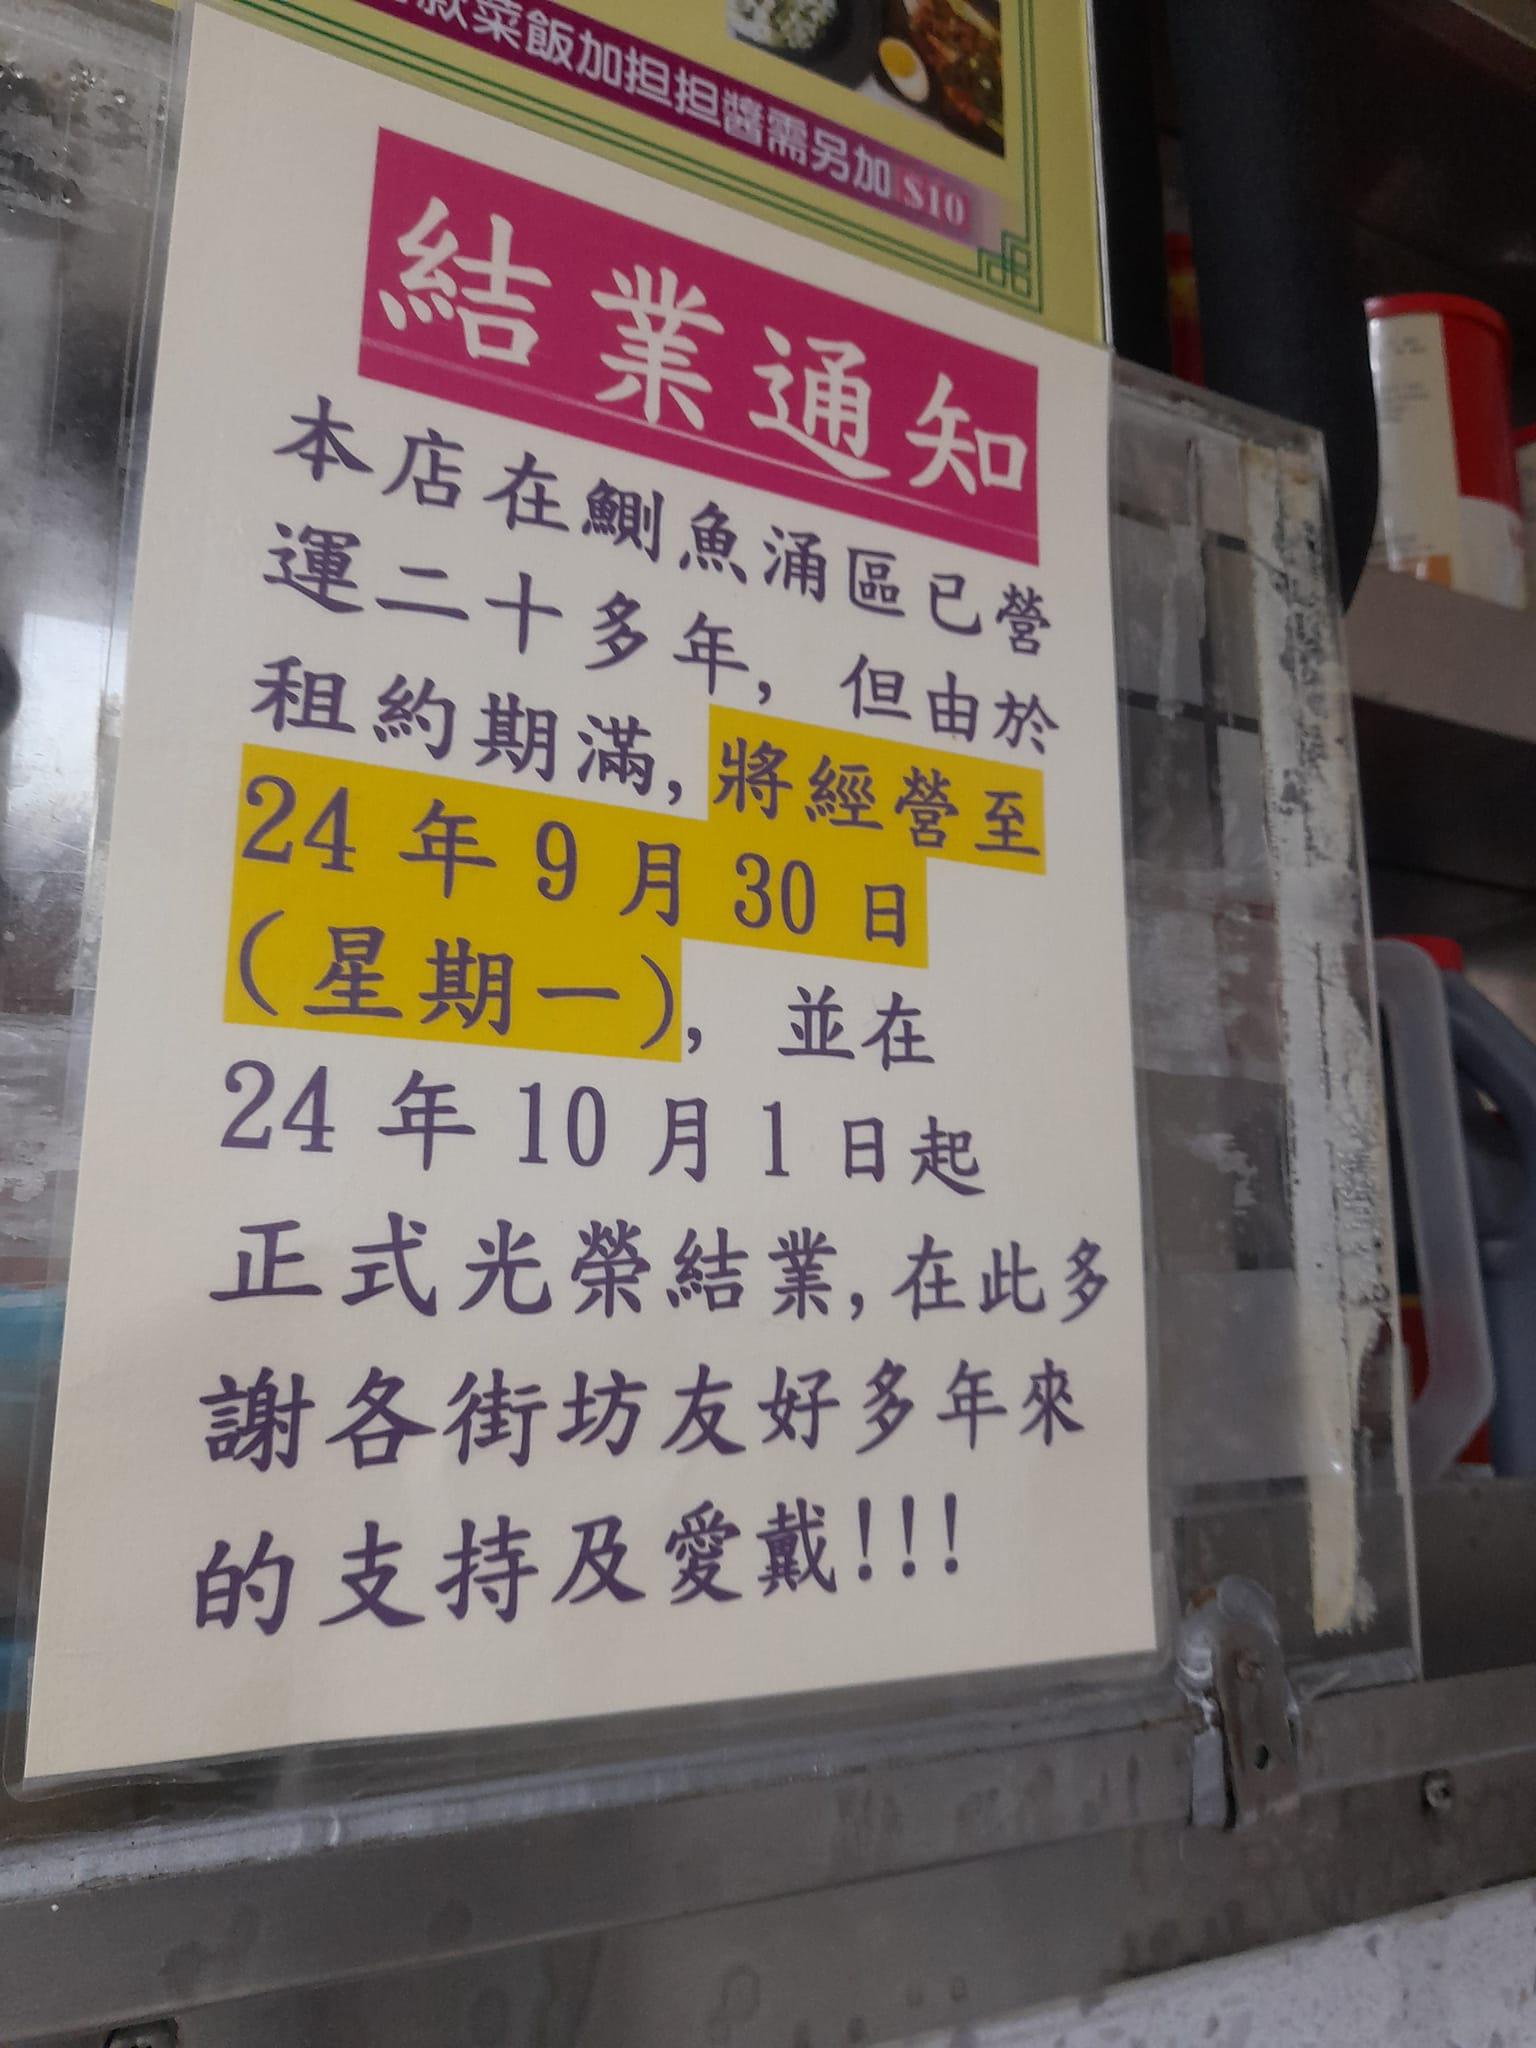 款菜飯加担担醬需另加 $10
結業通知
本店在鰂魚涌區已營
運二十多年，但由於
租約期滿，將經營至
24 年 9 月 30 日
（星期一），並在
24 年 10 月 1 日起
正式光榮結業，在此多
謝各街坊友好多年來
的支持及愛戴!!!